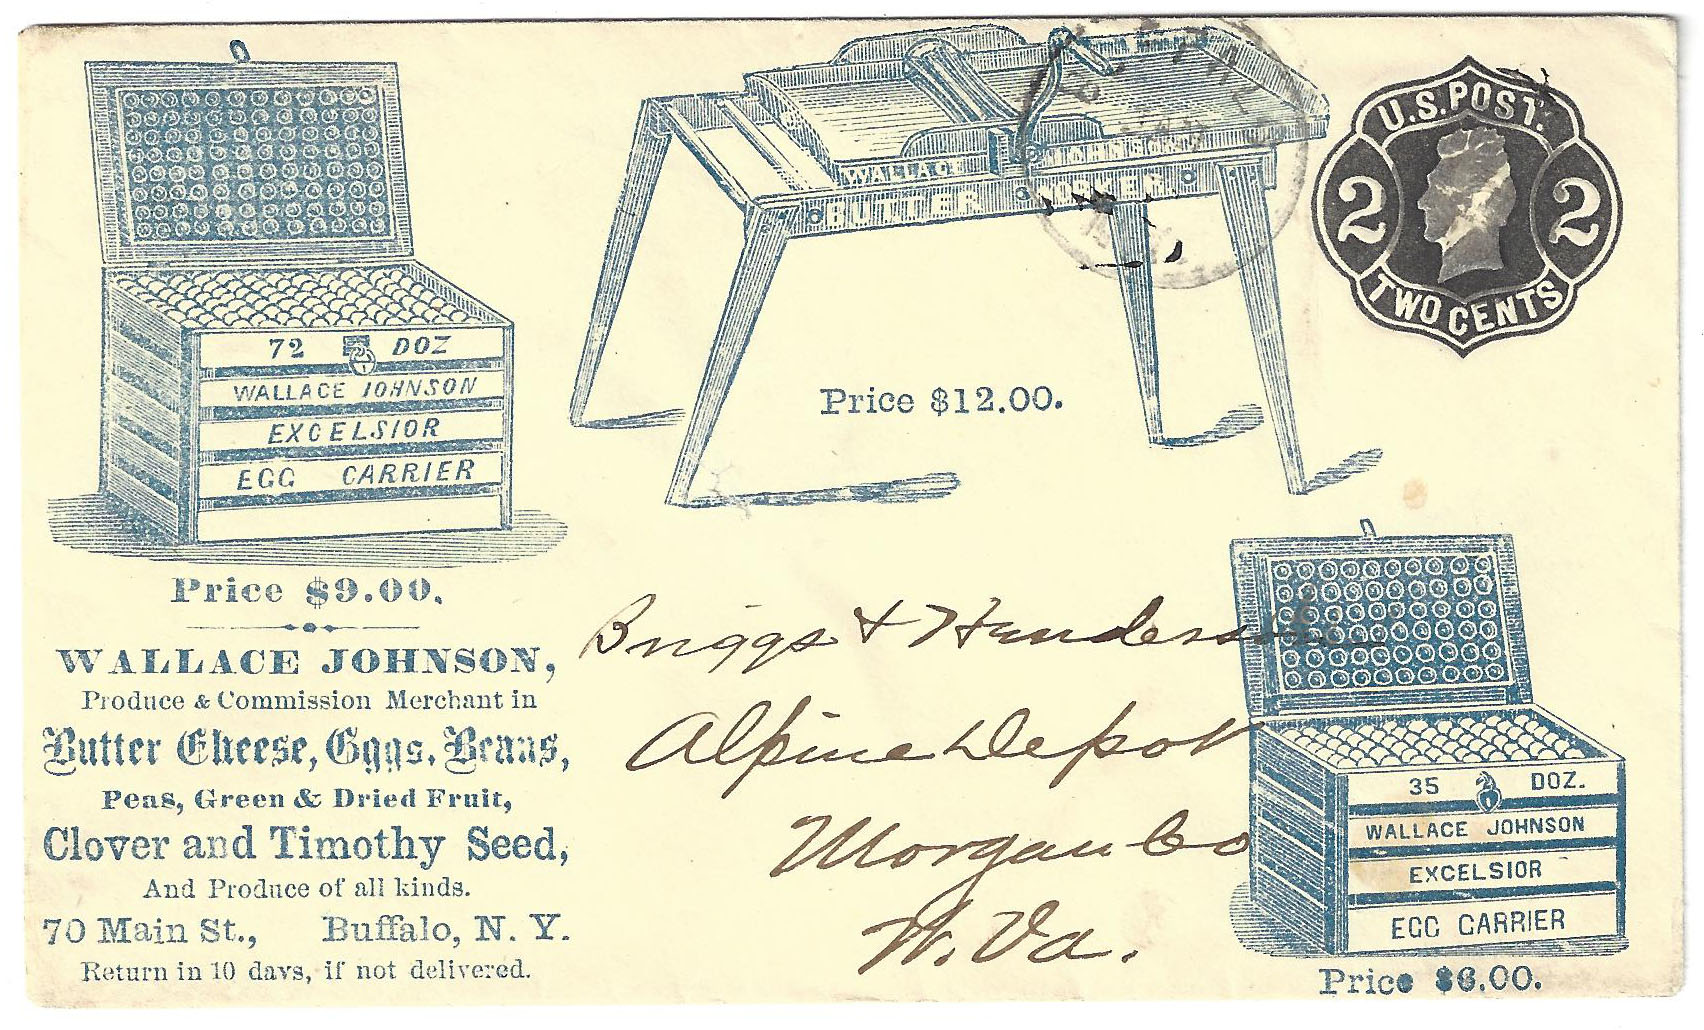 72 DOZ
WALLACE JOHNSON
EXCELSIOR
EGG CARRIER
Price $9.00.
WALLACE JOHNSON,
Produce & Commission Merchant in
Butter Cheese, Eggs, Beans,
Peas, Green & Dried Fruit,
Clover and Timothy Seed,
And Produce of all kinds.
70 Main St., Buffalo, N. Y.
Return in 10 days, if not delivered.
WALLACE JOHNSON
BUTTER WORKER.
Price $12.00.
U.S. POST.
2 2
TWO CENTS
Briggs & Henderson
Alpine Depot
Morgan Co
W. Va.
35 DOZ.
WALLACE JOHNSON
EXCELSIOR
EGG CARRIER
Price $6.00.